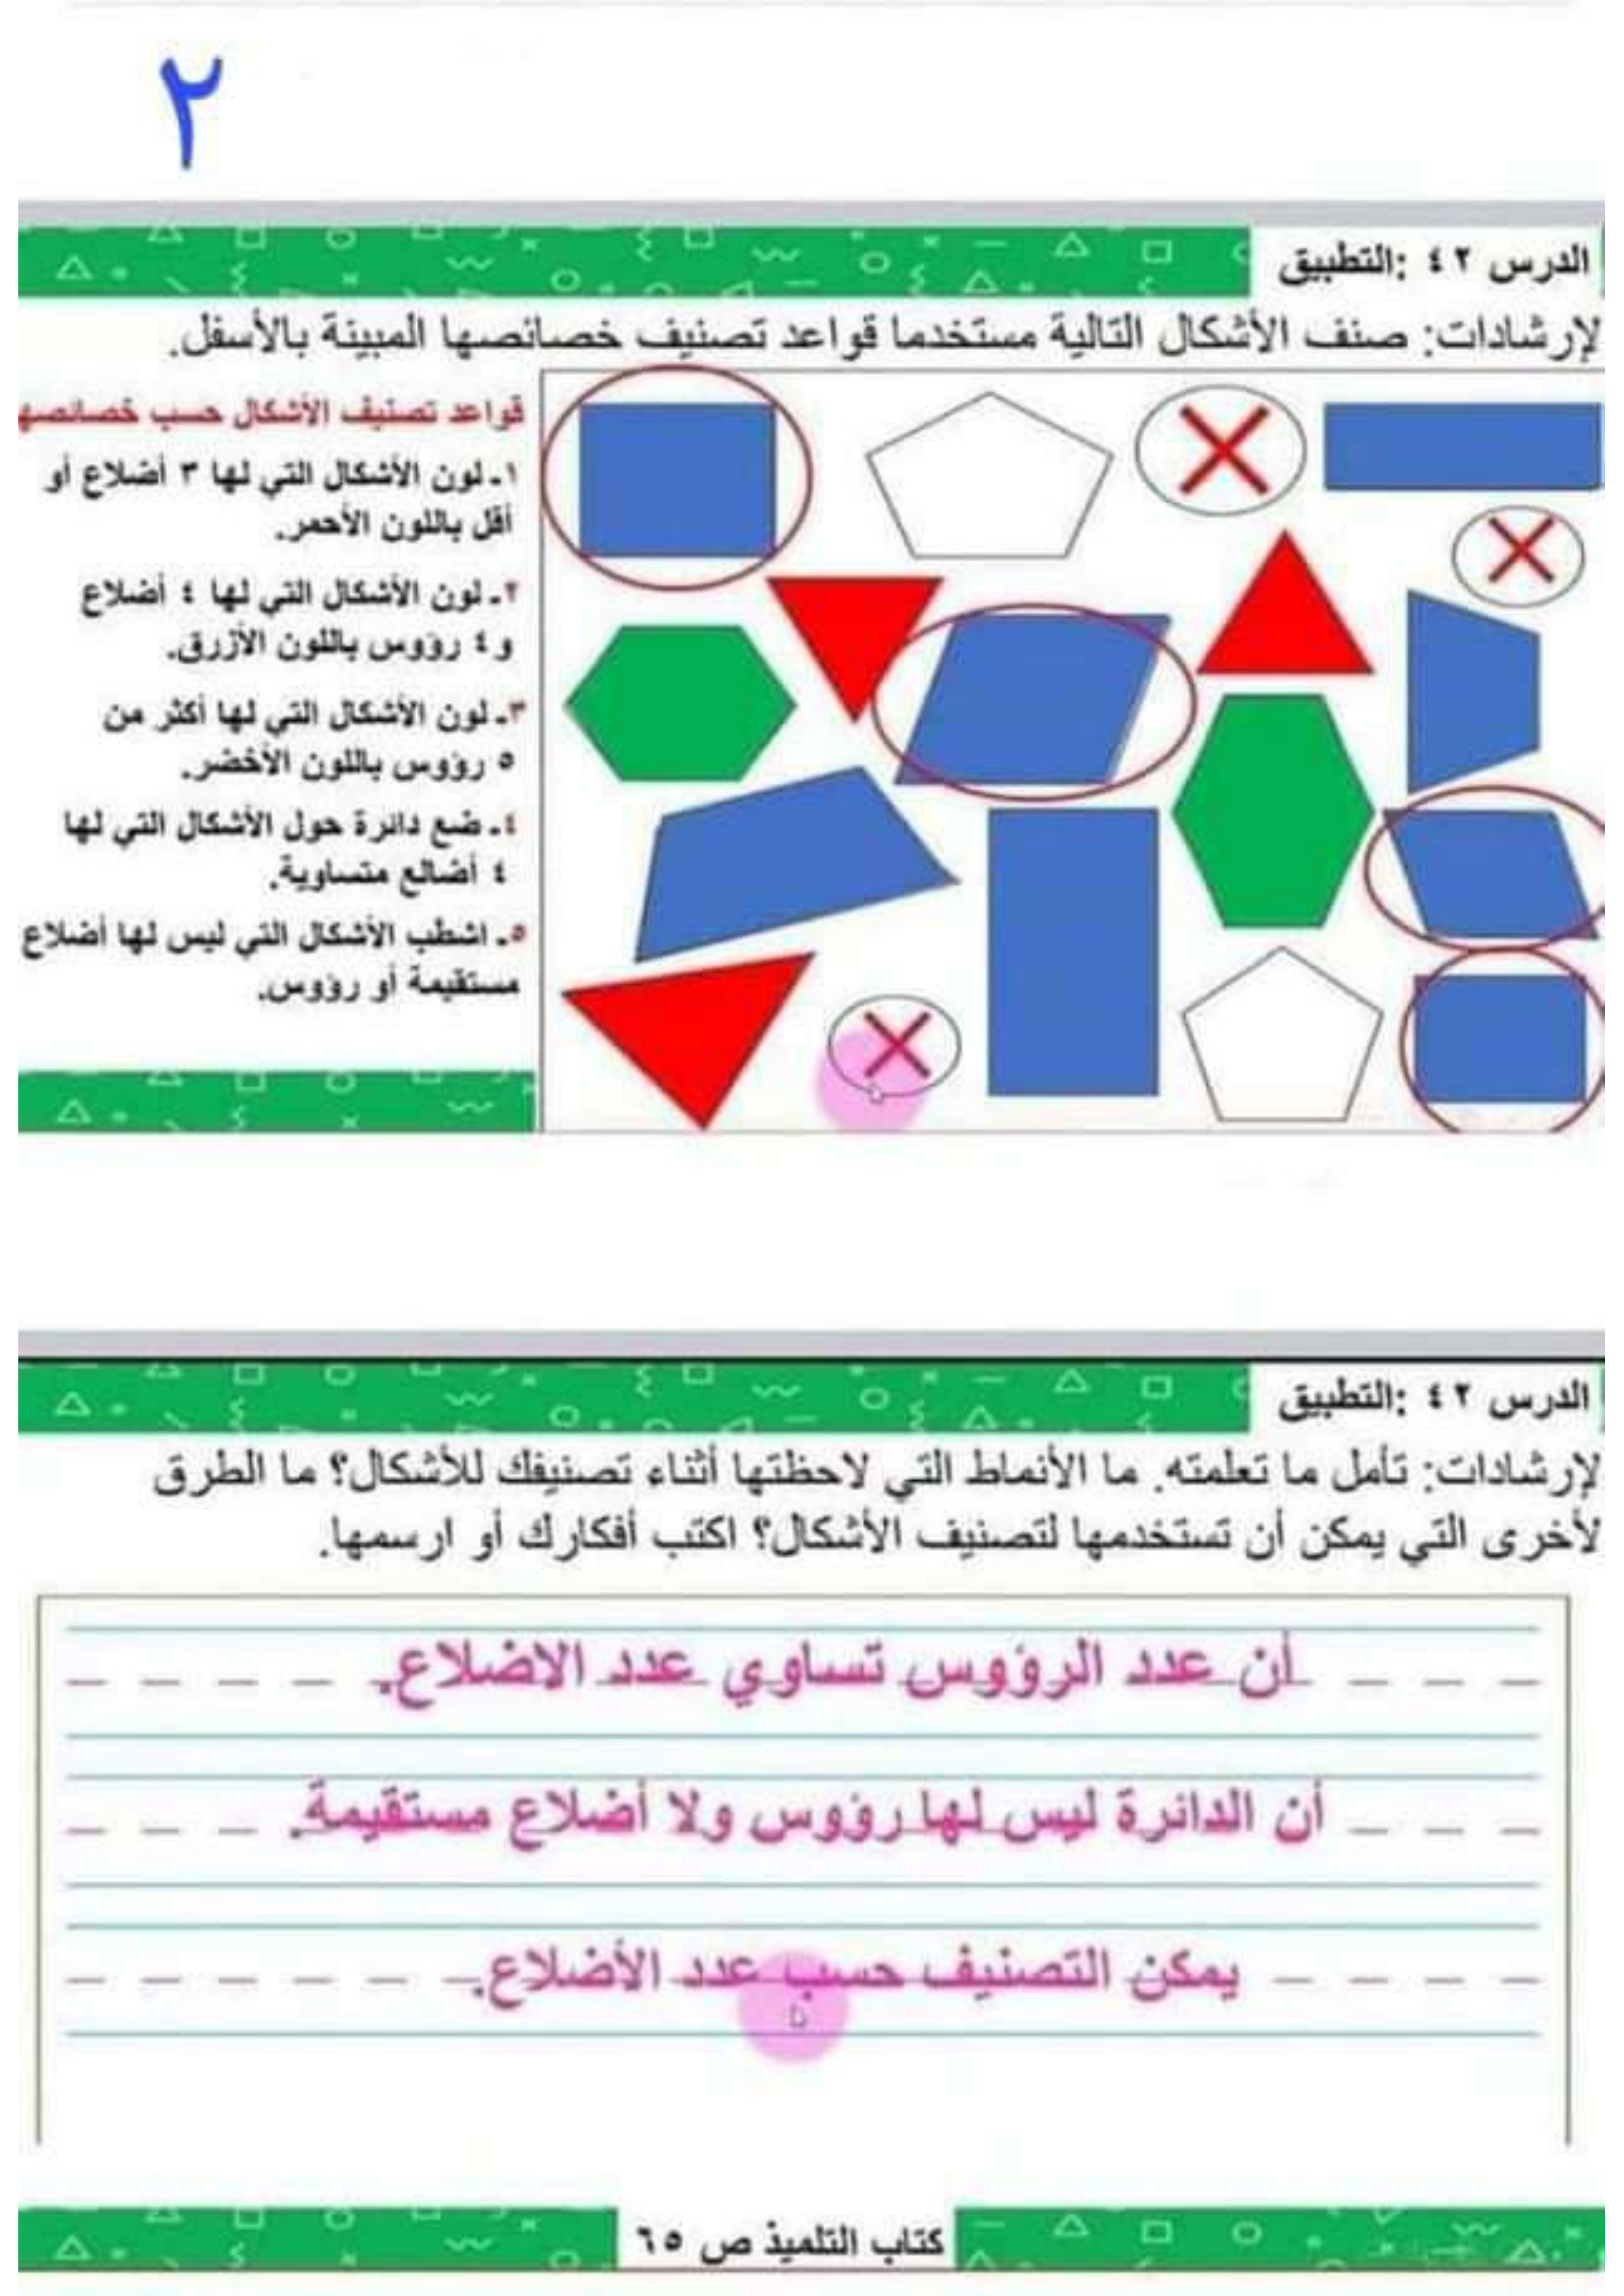 ٢
الدرس ٤٢ :التطبيق
لإرشادات: صنف الأشكال التالية مستخدما قواعد تصنيف خصائصها المبينة بالأسفل.
قواعد تصنيف الأشكال حسب خصائصها
١- لون الأشكال التي لها ٣ أضلاع أو
أقل باللون الأحمر.
٢- لون الأشكال التي لها ٤ أضلاع
و ٤ رؤوس باللون الأزرق.
٣- لون الأشكال التي لها أكثر من
٥ رؤوس باللون الأخضر.
٤- ضع دائرة حول الأشكال التي لها
٤ أضالع متساوية.
٥- اشطب الأشكال التي ليس لها أضلاع
مستقيمة أو رؤوس.
الدرس ٤٢ :التطبيق
لإرشادات: تأمل ما تعلمته. ما الأنماط التي لاحظتها أثناء تصنيفك للأشكال؟ ما الطرق
لأخرى التي يمكن أن تستخدمها لتصنيف الأشكال؟ اكتب أفكارك أو ارسمها.
أن عدد الرؤوس تساوي عدد الاضلاع.
أن الدائرة ليس لها رؤوس ولا أضلاع مستقيمة.
يمكن التصنيف حسب عدد الأضلاع.
كتاب التلميذ ص ٦٥